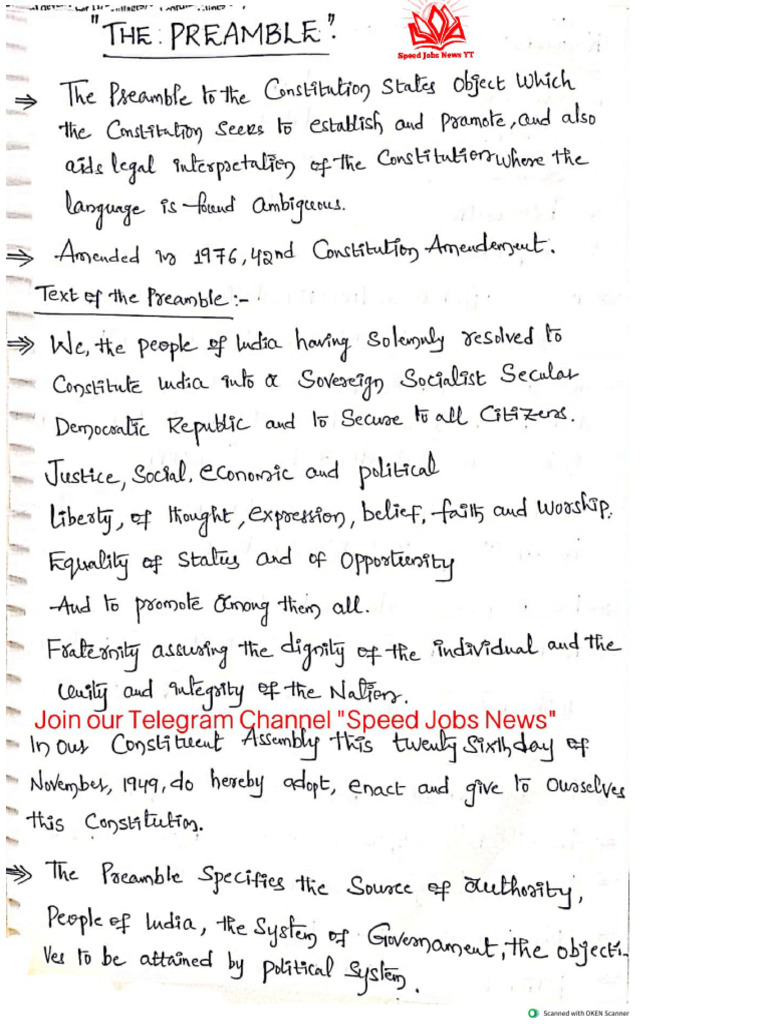 "THE PREAMBLE".
Speed Jobs News YT
⇒ The Preamble to the Constitution States Object Which
the Constitution Seeks to establish and pramote, and also
aids legal interpretation of the Constitution where the
language is found Ambiguous.
⇒ Amended in 1976, 42nd Constitution Amendement.
Text of the Preamble :-
⇒ We, the people of India having Solemnly resolved to
Constitute India into a Sovereign Socialist Secular
Democratic Republic and to Secure to all Citizens.
Justice, Social, economic and political
liberty, of thought, expression, belief, faith and worship.
Equality of Status and of Opportunity
And to promote among them all.
Fraternity assuring the dignity of the individual and the
Unity and integrity of the Nation.
Join our Telegram Channel "Speed Jobs News"
In our Constituent Assembly this twenty Sixth day of
November, 1949, do hereby adopt, enact and give to Ourselves
this Constitution.
⇒ The Preamble Specifies the Source of authority,
People of India, the System of Governament, the objecti-
ves to be attained by political System.
Scanned with OKEN Scanner